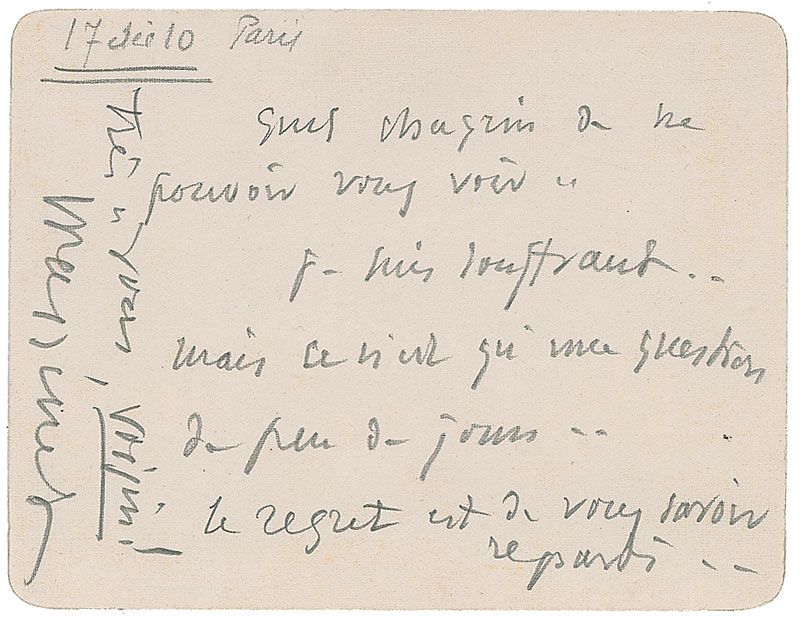 17 déc 10 Paris
Quel chagrin de ne
pouvoir vous voir ..
Je suis souffrant ..
mais ce n'est qu'une question
de peu de jours ..
le regret est de vous savoir
repartis ..
très